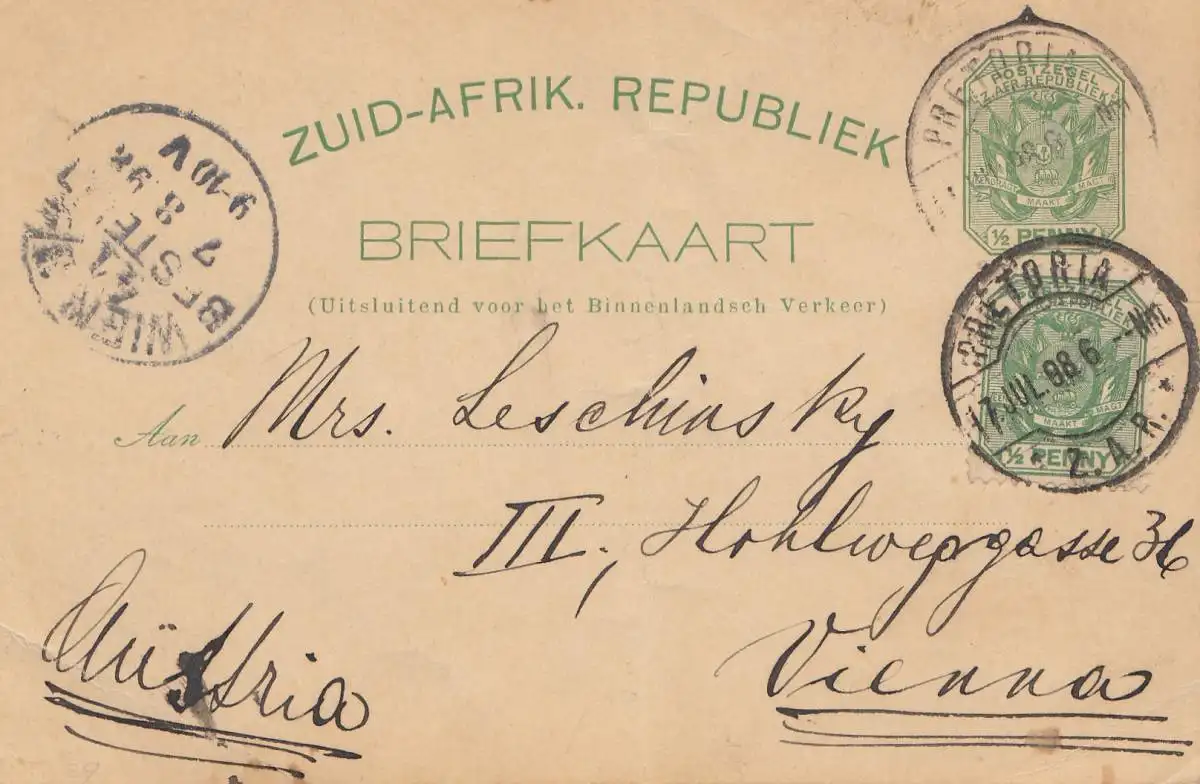 ZUID-AFRIK. REPUBLIEK
BRIEFKAART
(Uitsluitend voor het Binnenlandsch Verkeer)
Aan Mrs. Leschinsky
III, Hohlweggasse 36
Vienna
Austria
POSTZEGEL
Z. AFR. REPUBLIEK
EENDRAGT MAAKT MAGT
1/2 PENNY
PRETORIA
PRETORIA
17.JUL.98.6
Z.A.R.
EENDRAGT MAAKT MAGT
1/2 PENNY
WIEN
BESTELLT
7 8 98
9-10V